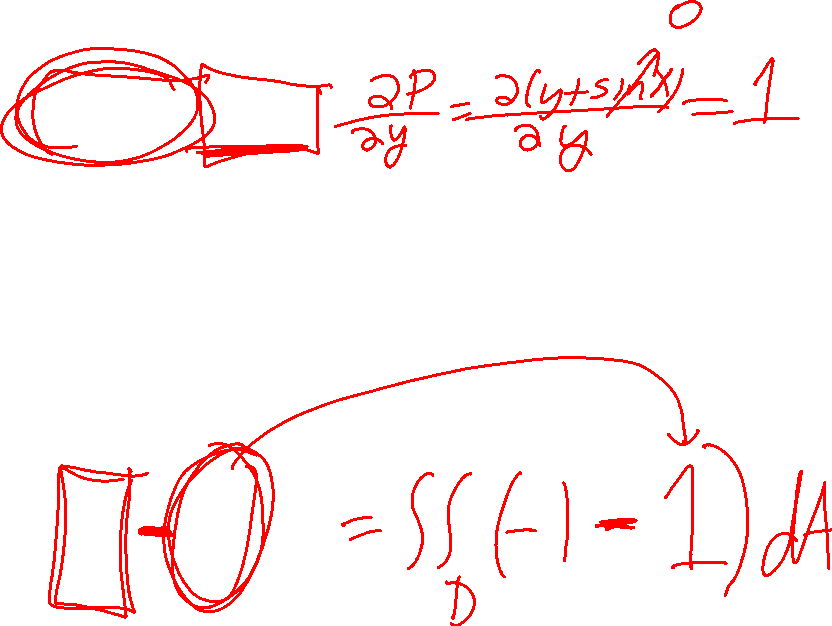 0
∂P/∂y = ∂(y+sin x)/∂y = 1
= ∫∫_D (-1 - 1) dA